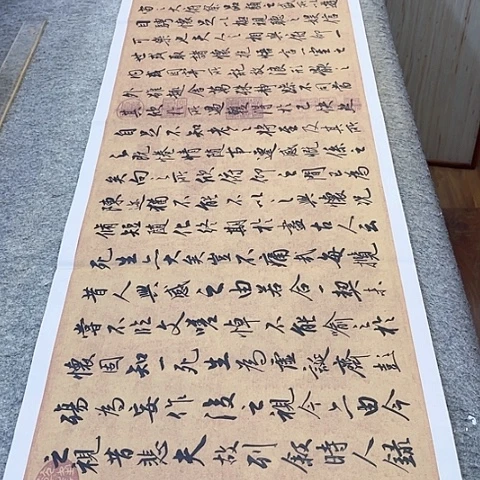 之大俯察品類之盛所以遊
目騁懷足以極視聽之娛信
可樂也夫人之相與俯仰一
世或取諸懷抱悟言一室之
內或因寄所託放浪形骸之
外雖趣舍萬殊靜躁不同當
其欣於所遇暫得於己快然
自足不知老之將至及其所
之既惓情隨事遷感慨係之
矣向之所欣俯仰之間以為
陳迹猶不能不以之興懷況
脩短隨化終期於盡古人云
死生亦大矣豈不痛哉每攬
昔人興感之由若合一契未
嘗不臨文嗟悼不能喻之於
懷固知一死生為虛誕齊彭
殤為妄作後之視今亦由今
之視昔悲夫故列敘時人錄